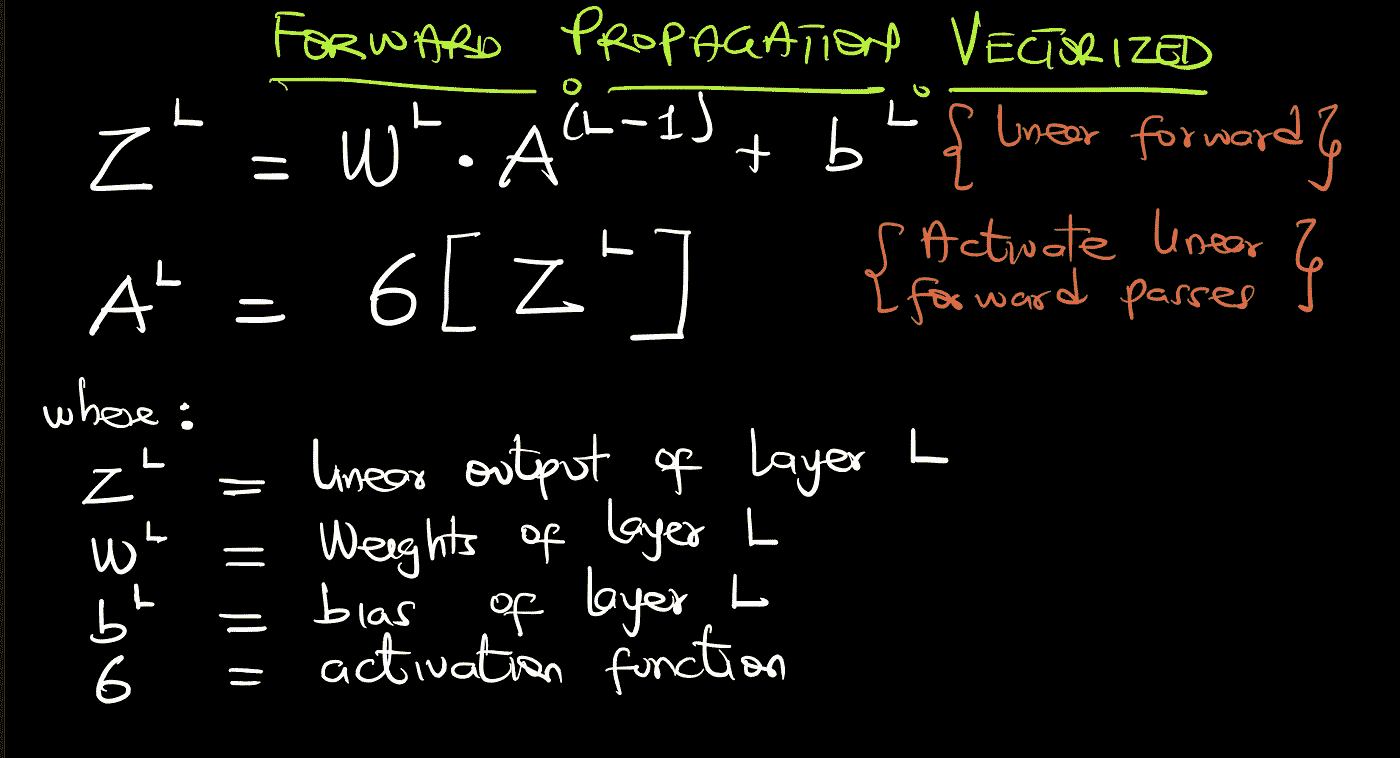 FORWARD PROPAGATION VECTORIZED
Z^L = W^L . A^(L-1) + b^L { linear forward }
A^L = 6[Z^L] { Activate linear
forward passes }
where:
Z^L = linear output of layer L
W^L = Weights of layer L
b^L = bias of layer L
6 = activation function